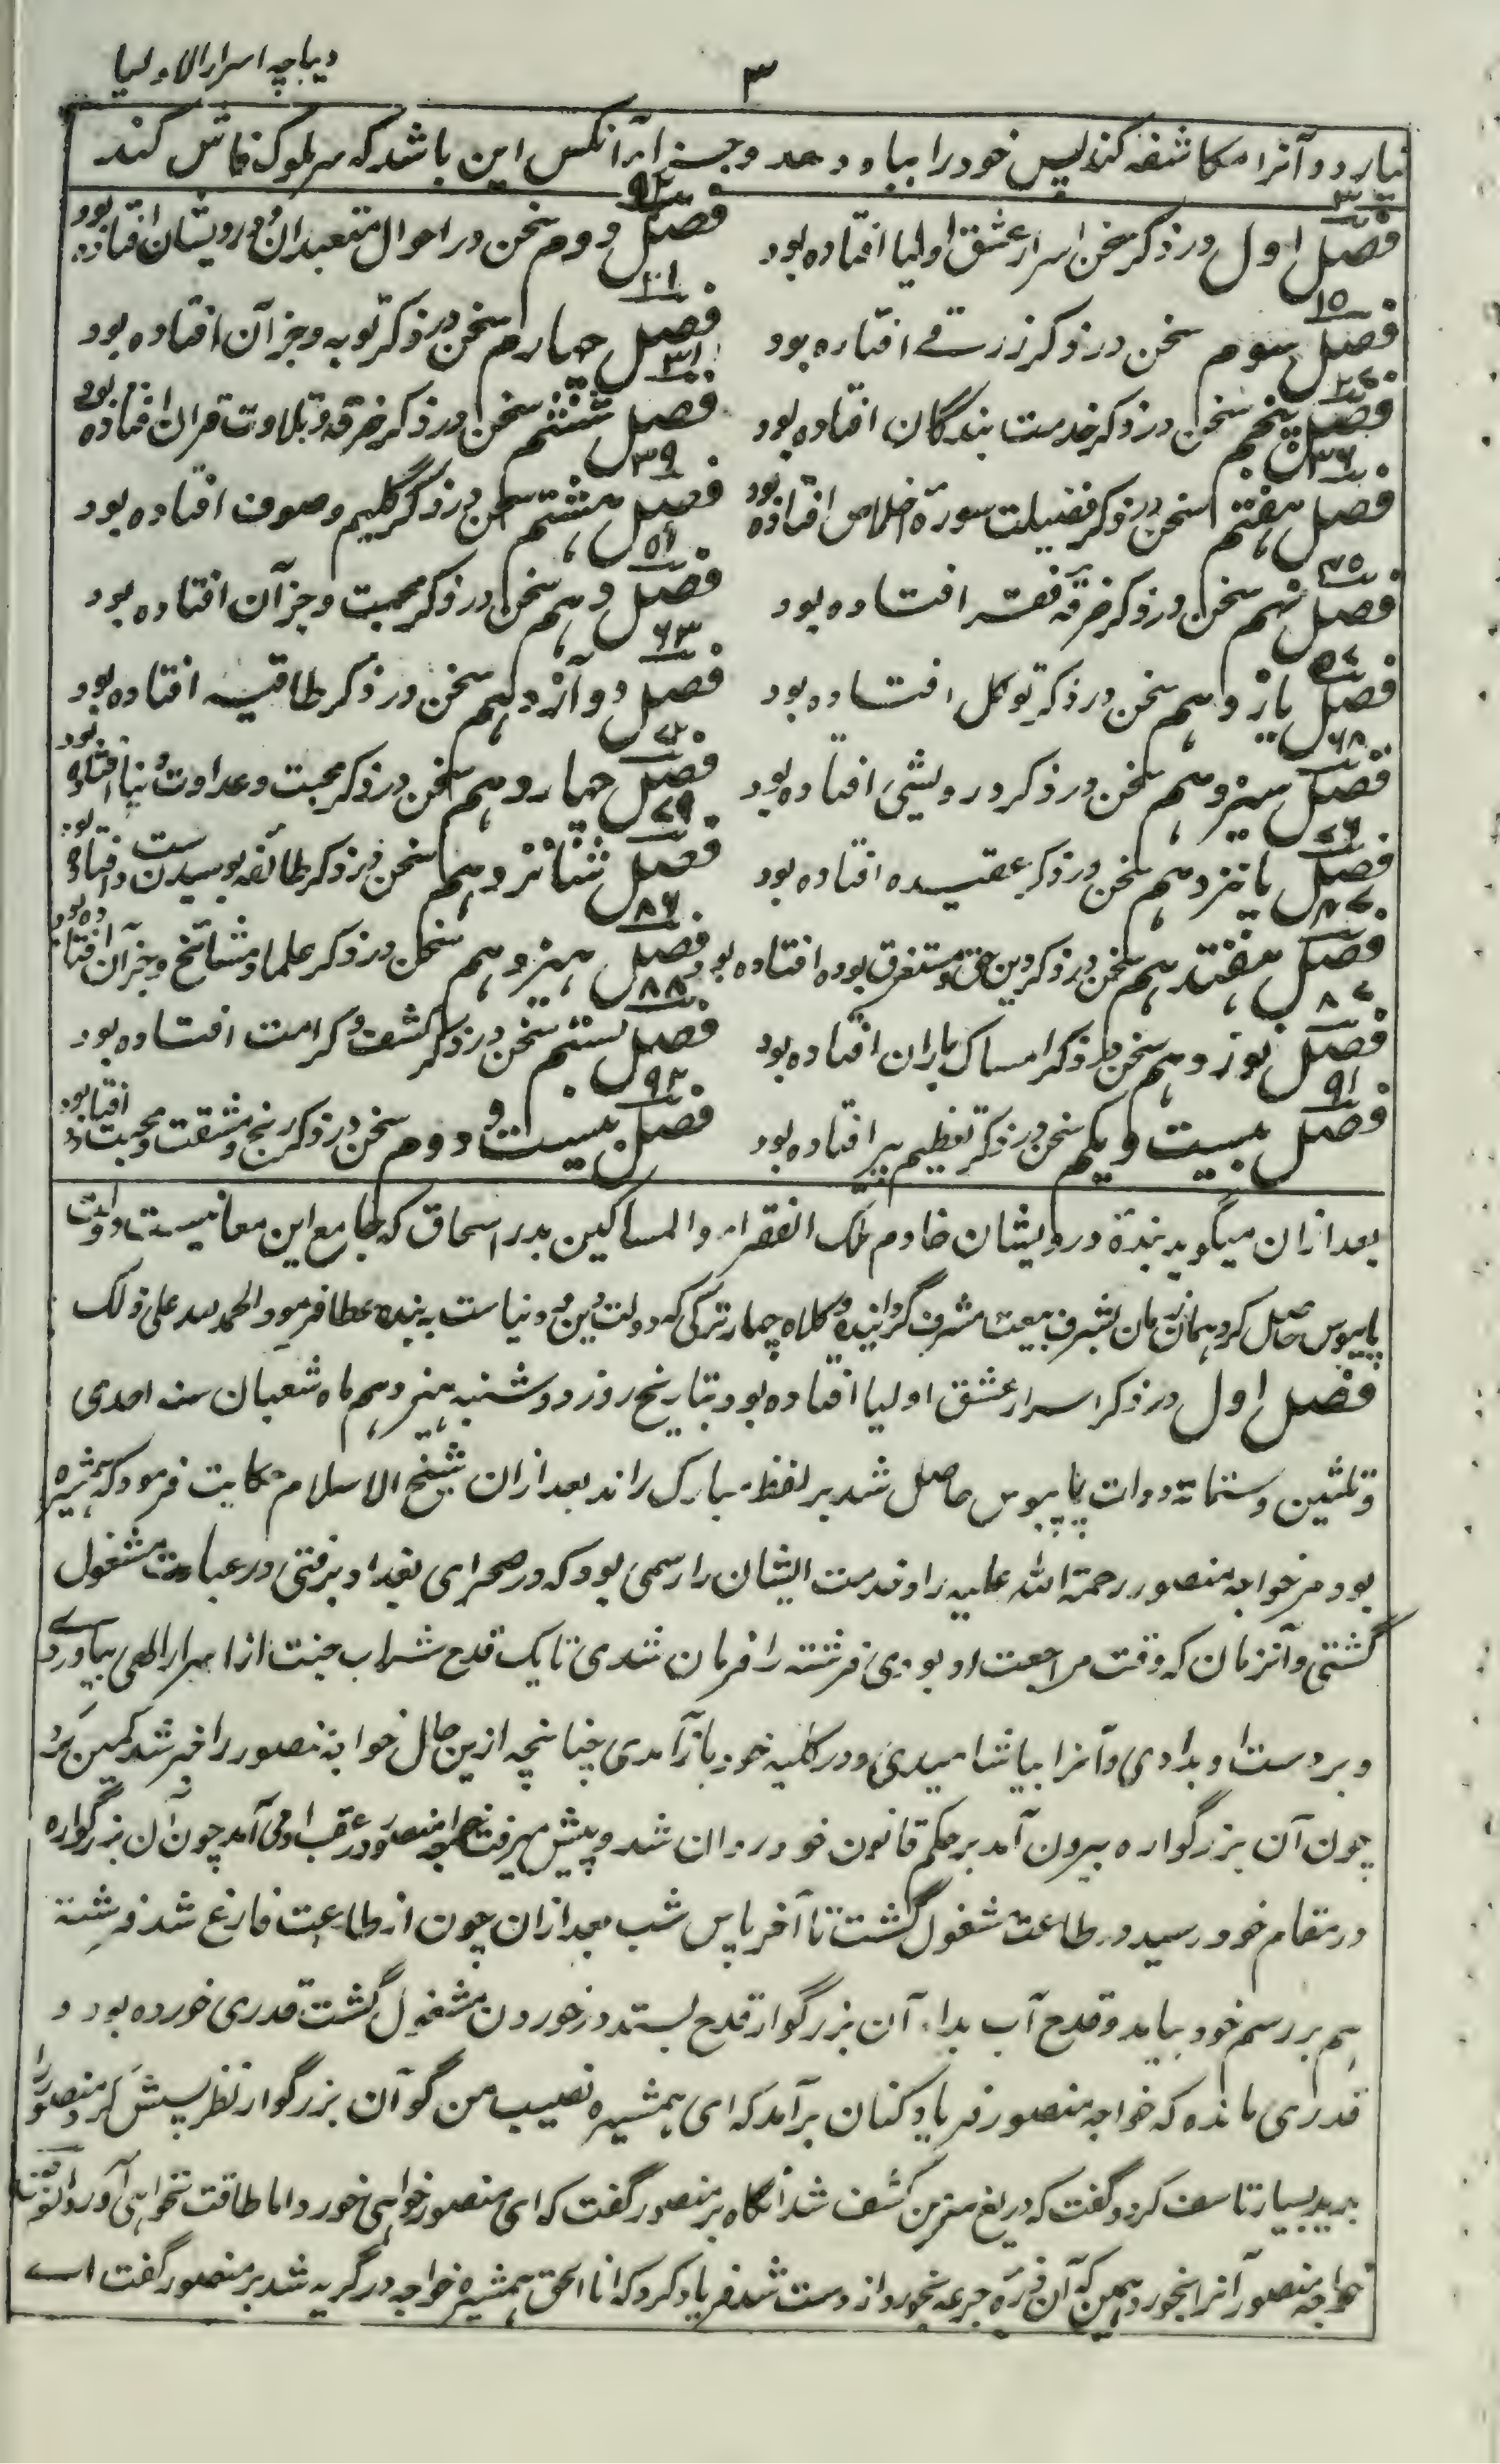 دیباچه اسرار الاولیا
۳
نیارد و آنرا مکاشفه کند پس خود را بباد دهد و جزاء آنکس این باشد که سر ملوک فاش کند
فصل اول در ذکر سخن اسرار عشق اولیا افتاده بود
فصل دوم سخن در احوال متعبدان و درویشان افتاده بود
۱۵
فصل سوم سخن در ذکر رزق افتاده بود
۲۱
فصل چهارم سخن در ذکر توبه و جز آن افتاده بود
فصل پنجم سخن در ذکر خدمت بندگان افتاده بود
۳۱
فصل ششم سخن در ذکر خرقه و تلاوت قرآن افتاده بود
۳۶
فصل هفتم سخن در ذکر فضیلت سورة اخلاص افتاده بود
۳۹
فصل هشتم سخن در ذکر گلیم و صوف افتاده بود
۴۵
فصل نهم سخن در ذکر خرقه فقر افتاده بود
۵۱
فصل دهم سخن در ذکر محبت و جز آن افتاده بود
۵۷
فصل یازدهم سخن در ذکر توکل افتاده بود
۶۳
فصل دوازدهم سخن در ذکر طاقیه افتاده بود
۶۸
فصل سیزدهم سخن در ذکر درویشی افتاده بود
۷۲
فصل چهاردهم سخن در ذکر محبت و عداوت دنیا افتاده بود
۷۶
فصل پانزدهم سخن در ذکر عقیده افتاده بود
۷۹
فصل شانزدهم سخن در ذکر طائفه بوسیدن دست افتاده بود
فصل هفتدهم سخن در ذکر دین حق و مستغرق بوده افتاده بود
۸۶
فصل هیزدهم سخن در ذکر علما و مشائخ و جز آن افتاده بود
۸۷
فصل نوزدهم سخن در ذکر امساک باران افتاده بود
۸۸
فصل بستم سخن در ذکر کشف و کرامت افتاده بود
۹۱
فصل بیست و یکم سخن در ذکر تعظیم پیر افتاده بود
۹۲
فصل بیست و دوم سخن در ذکر رنج و مشقت و محبت افتاده بود
بعد ازان میگوید بندۀ درویشان خادم ملک الفقراء والمساکین بدر اسحاق که جامع این معانیست دولت
پایبوس حاصل کرد همان زمان بشرف بیعت مشرف گردانیده و کلاه چهار ترکی که دولت دین و دنیاست به بنده عطا فرمود الحمد لله علی ذلک
فصل اول در ذکر اسرار عشق اولیا افتاده بود بتاریخ روز دوشنبه هیزدهم ماه شعبان سنه احدی
و ثلثین و ستمائة دولت پایبوس حاصل شد بر لفظ مبارک راند بعد ازان شیخ الاسلام حکایت فرمود که همشیره
بود مر خواجه منصور رحمة الله علیه را و خدمت ایشان را رسمی بود که در صحرای بغداد برفتی در عبادت مشغول
گشتی و آنزمان که وقت مراجعت او بودی فرشته را فرمان شدی تا یک قدح شراب جنت از اسرار الهی بیاوردی
و بر دست او بدادی و آنرا بیاشامیدی و در کلبه خود باز آمدی چنانچه ازین حال خواجه منصور را خبر شد کمین کرد
چون آن بزرگواره بیرون آمد بر حکم قانون خود روان شد و پیش میرفت خواجه منصور در عقب او می آمد چون آن بزرگواره
در مقام خود رسید در طاعت مشغول گشت تا آخر پاس شب بعد ازان چون از طاعت فارغ شد فرشته
هم بر رسم خود بیامد و قدح آب بداد آن بزرگوار قدح بستد و در خوردن مشغول گشت قدری خورده بود و
قدری مانده که خواجه منصور فریاد کنان برآمد که ای همشیره نصیب من گو آن بزرگوار نظر پیش کرد منصور را
بدید بسیار تاسف کرد و گفت که دریغ سر من کشف شد آنگاه بر منصور گفت که ای منصور خواهی خورد اما طاقت نخواهی آورد
خواجه منصور آنرا بخورد همین که آن ذره جرعه بخورد از دست شد فریاد کرد که انا الحق همشیره خواجه در گریه شد بر منصور گفت اے